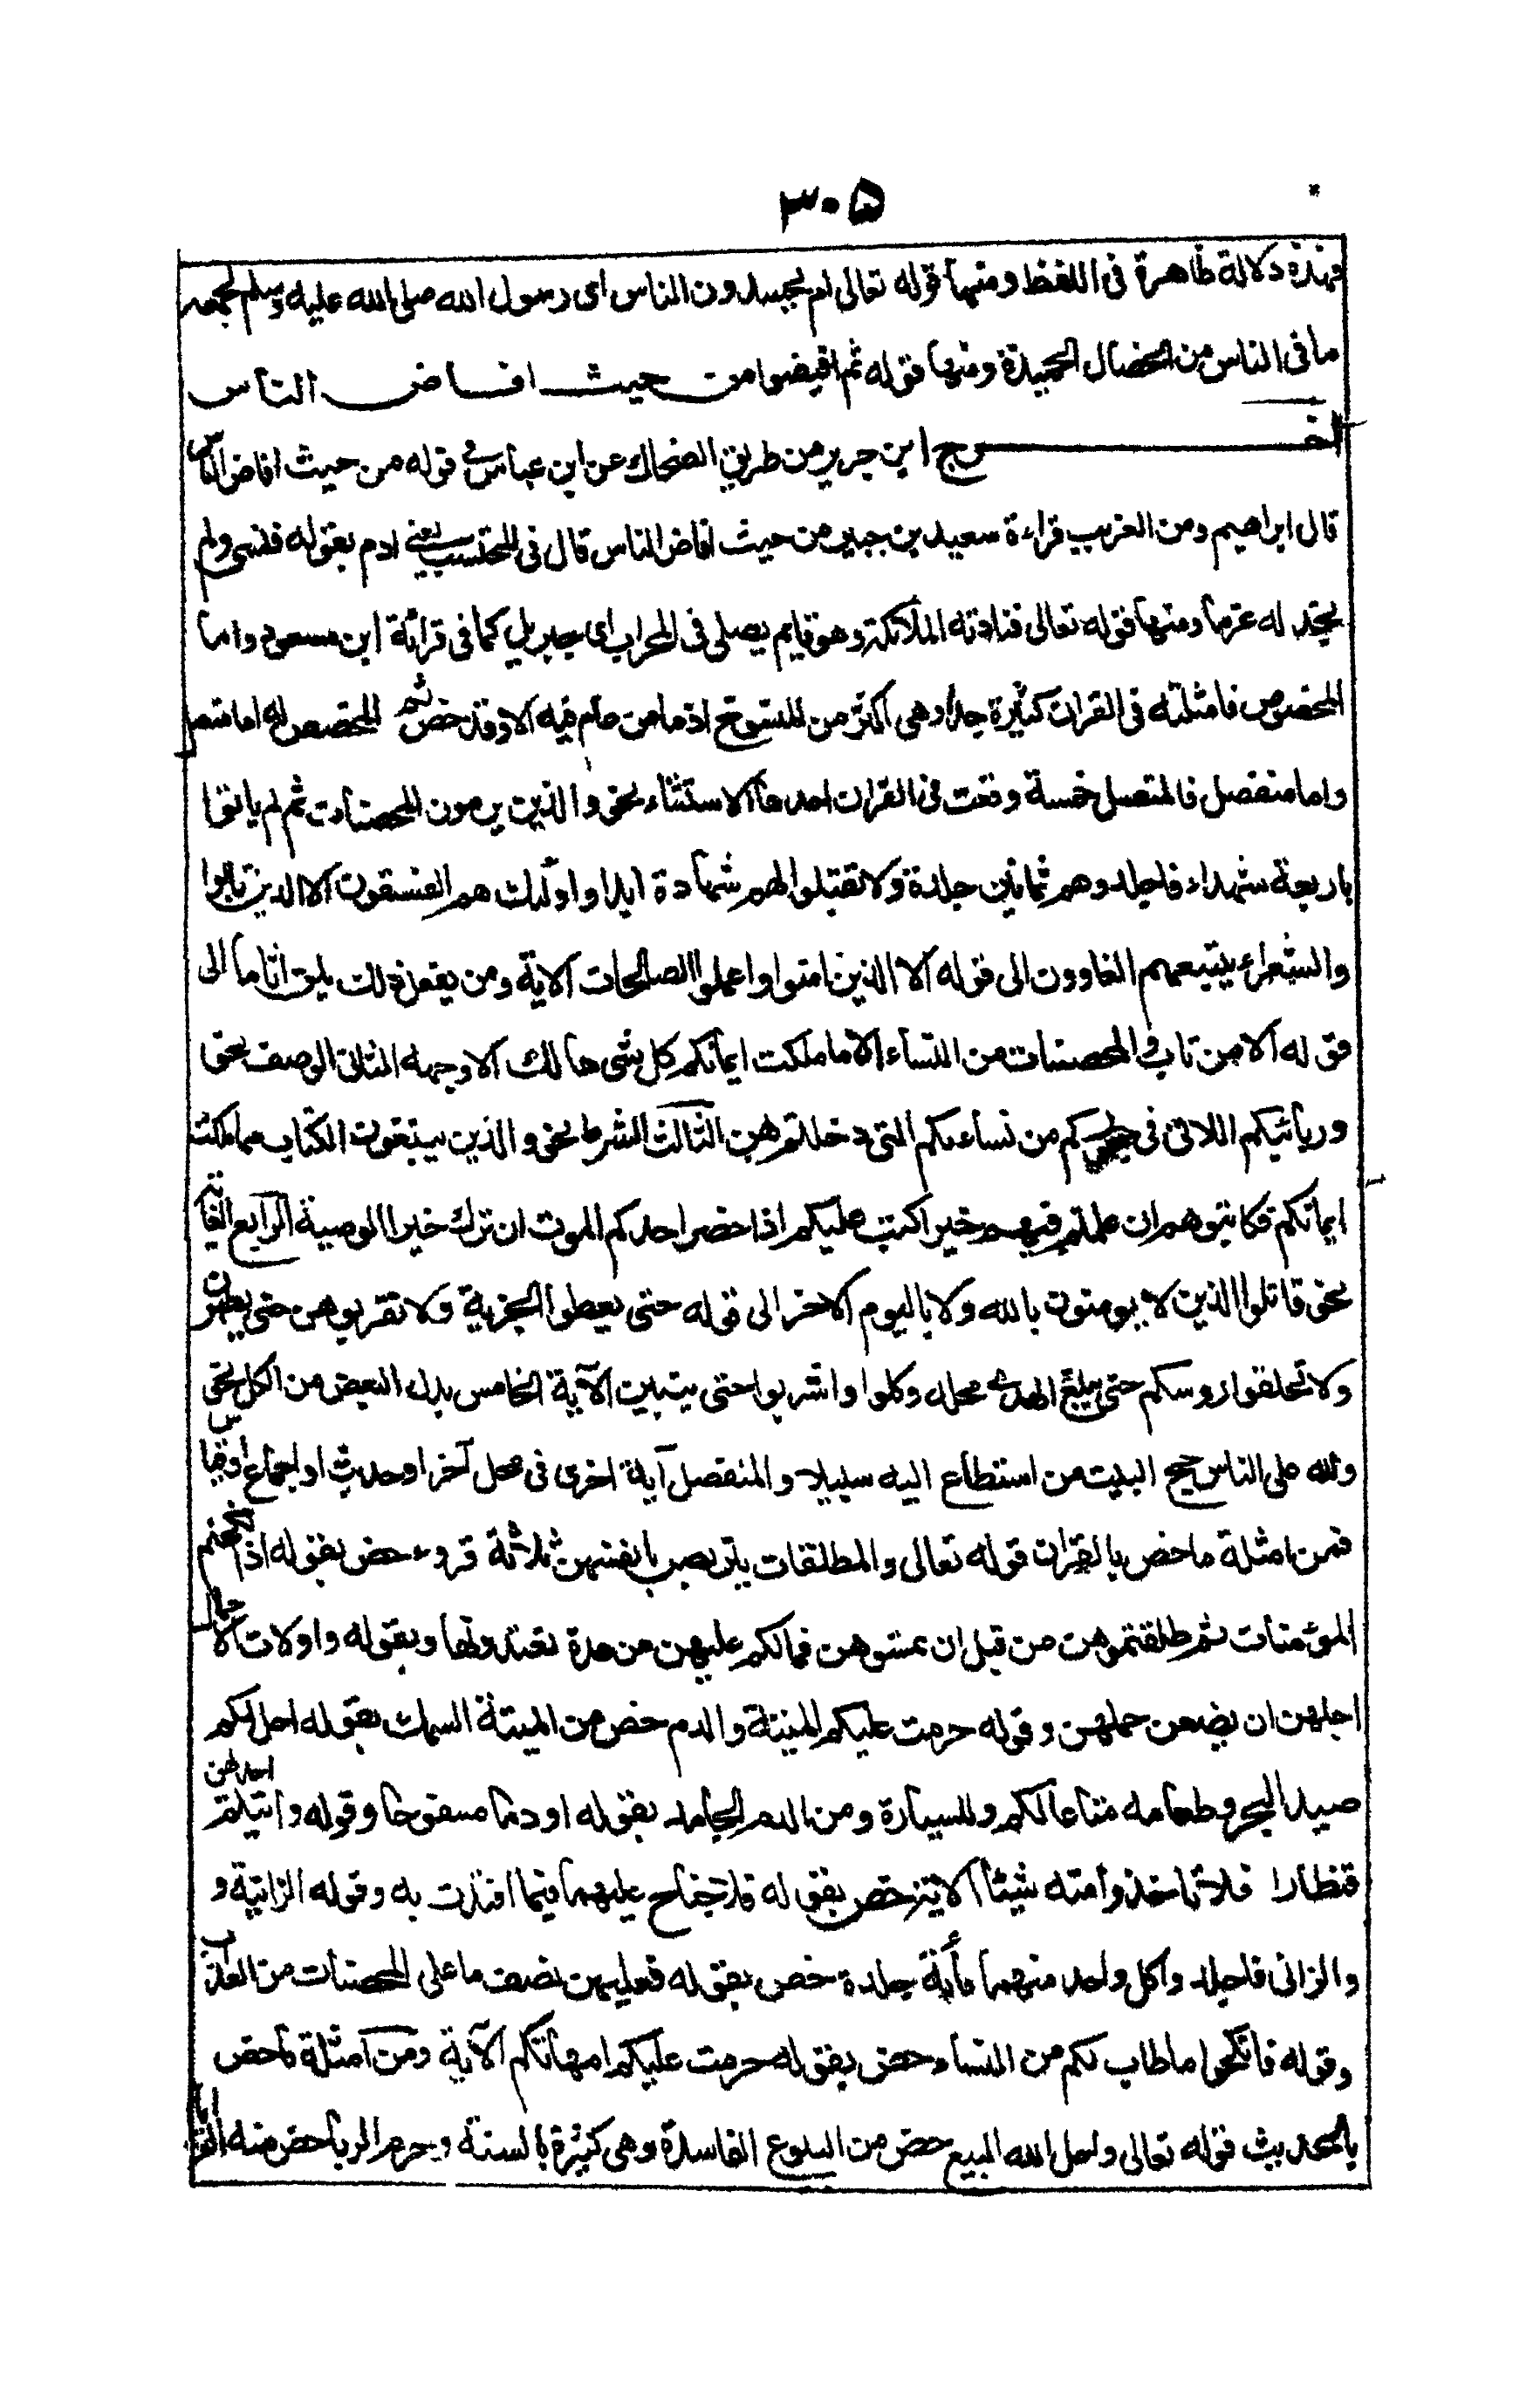 ۳۰۵
فهذه دلالة ظاهرة فى اللفظ ومنها قوله تعالى ام يحسدون الناس اى رسول الله صلى الله عليه وسلم لجمعه
ما فى الناس من الخصال الحميدة ومنها قوله ثم افيضوا من حيث افاض الناس
اخرج ابن جرير من طريق الضحاك عن ابن عباس فى قوله من حيث افاض الناس
قال ابراهيم ومن الغريب قراءة سعيد بن جبير من حيث افاض الناس قال فى المحتسب يعنى ادم بقوله فنسى ولم
يجد له عزما ومنها قوله تعالى فنادته الملائكة وهو قايم يصلى فى المحراب اى جبريل كما فى قرائة ابن مسعود واما
المخصوص فامثلته فى القران كثيرة جدا وهى اكثر من المنسوخ اذ ما من عام فيه الا وقد خص ثم المخصص له اما متصل
واما منفصل فالمتصل خمسة وقعت فى القران احدها الاستثناء نحو والذين يرمون المحصنات ثم لم ياتوا
باربعة شهداء فاجلدوهم ثمانين جلدة ولا تقبلوا لهم شهادة ابدا واولئك هم الفسقون الا الذين تابوا
والشعراء يتبعهم الغاوون الى قوله الا الذين امنوا وعملوا الصالحات الاية ومن يفعل ذلك يلق اثاما الى
قوله الا من تاب والمحصنات من النساء الا ما ملكت ايمانكم كل شى هالك الا وجهه الثانى الوصف نحو
وربائبكم اللاتى فى حجوركم من نساءكم التى دخلتم بهن الثالث الشرط نحو والذين يبتغون الكتاب مما ملكت
ايمانكم فكاتبوهم ان علمتم فيهم خيرا كتب عليكم اذا حضر احدكم الموت ان ترك خيرا الوصية الرابع الغاية
نحو قاتلوا الذين لا يومنون بالله ولا باليوم الاخر الى قوله حتى يعطوا الجزية ولا تقربوهن حتى يطهرن
ولا تحلقوا روسكم حتى يبلغ الهدى محله وكلوا واشربوا حتى يتبين الآية الخامس بدل البعض من الكل نحو
ولله على الناس حج البيت من استطاع اليه سبيلا والمنفصل آية اخرى فى محل آخر او حديث او اجماع او قياس
فمن امثلة ما خص بالقران قوله تعالى والمطلقات يتربصن بانفسهن ثلاثة قروء خص بقوله اذا نكحتم
المؤمنات ثم طلقتموهن من قبل ان تمسوهن فمالكم عليهن من عدة تعتدونها وبقوله واولات الاحمال
اجلهن ان يضعن حملهن وقوله حرمت عليكم الميتة والدم خص من الميتة السمك بقوله احل لكم
صيد البحر وطعامه متاعا لكم وللسيارة ومن الدم الجامد بقوله او دما مسفوحا وقوله واتيتم احداهن
قنطارا فلا تاخذوا منه شيئا الاية خص بقوله فلا جناح عليهما فيما افتدت به وقوله الزانية و
والزانى فاجلدوا كل واحد منهما مأية جلدة خص بقوله فعليهن نصف ما على المحصنات من العذاب
وقوله فانكحوا ما طاب لكم من النساء خص بقوله حرمت عليكم امهاتكم الآية ومن امثلة ما خص
بالحديث قوله تعالى واحل الله البيع خص من البيوع الفاسدة وهى كثيرة بالسنة وحرم الربا خص منه العرايا